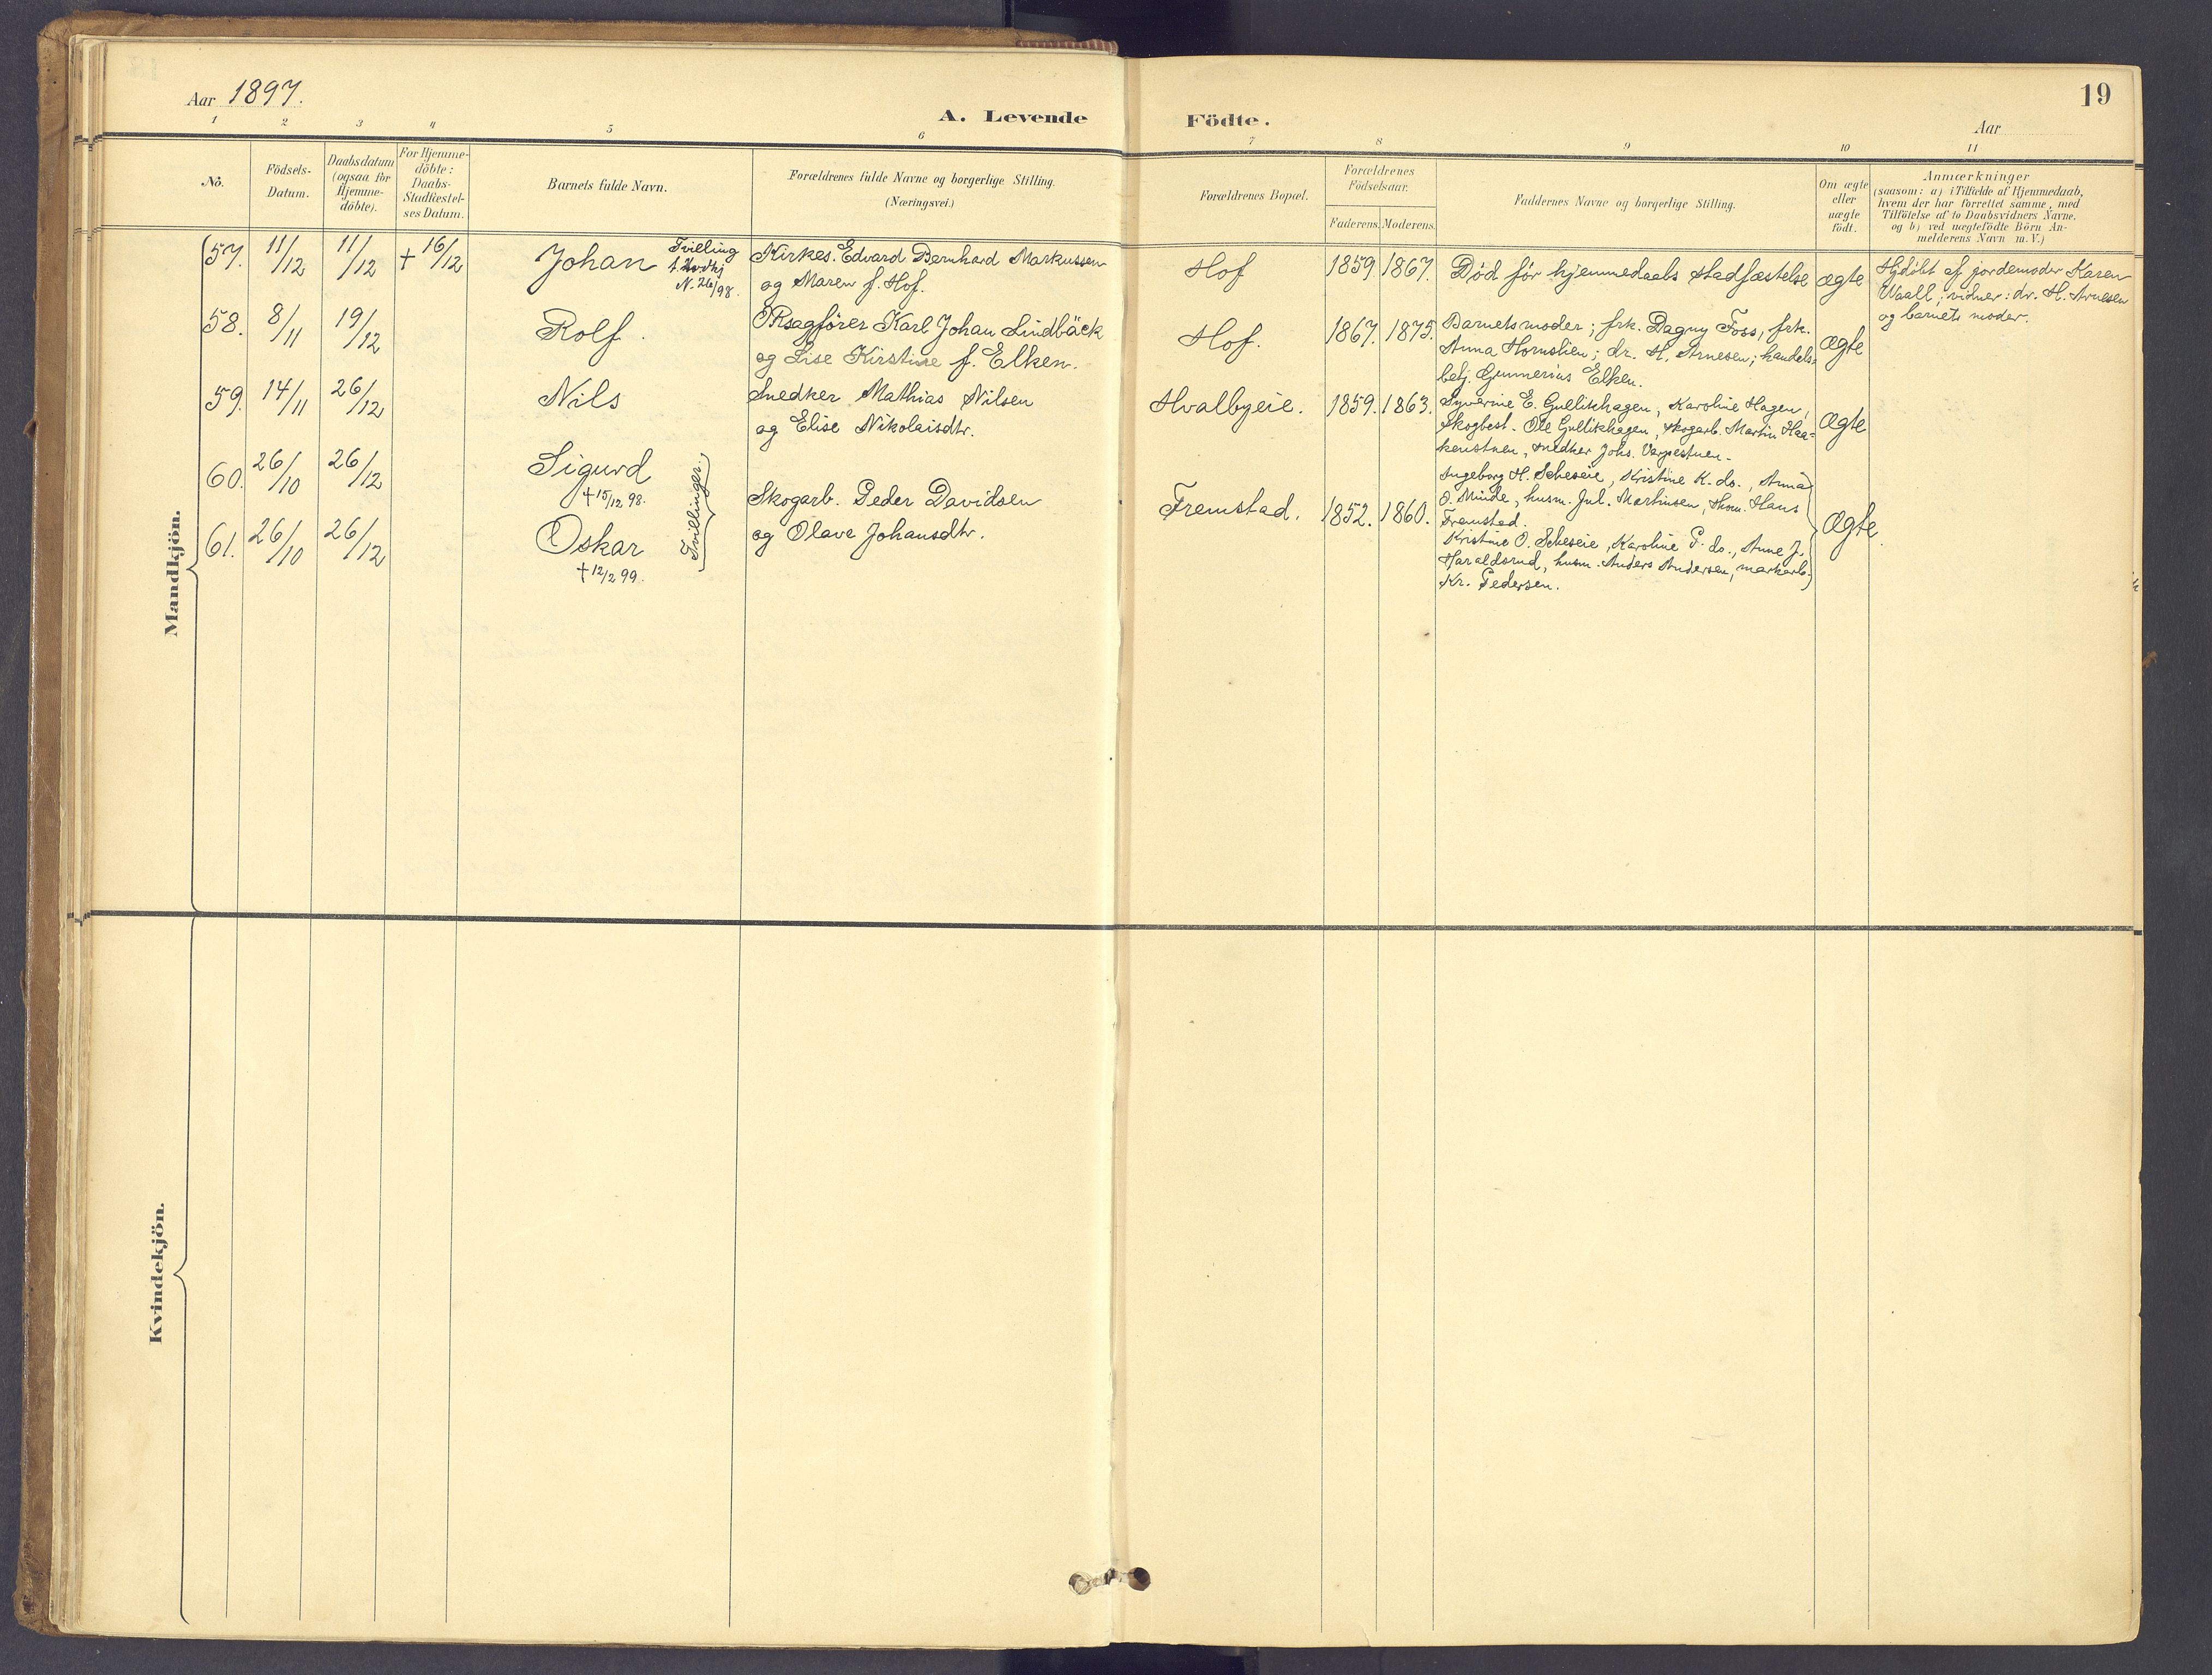 Aar 1897.
A. Levende Födte.
19
Aar
1 2 3 4 5 6 7 8 9 10 11
No.
Födsels-
Datum.
Daabsdatum
(ogsaa for
Hjemme-
döbte).
For Hjemme-
döbte:
Daabs-
Stadfæstel-
ses Datum.
Barnets fulde Navn.
Forældrenes fulde Navne og borgerlige Stilling.
(Næringsvei.)
Forældrenes Bopæl.
Forældrenes
Födselsaar.
Faderens. Moderens.
Faddernes Navne og borgerlige Stilling.
Om ægte
eller
uægte
födt.
Anmærkninger
(saasom: a) i Tilfælde af Hjemmedaab,
hvem der har forrettet samme, med
Tilföielse af to Daabsvidners Navne.
og b) ved uægtefödte Börn An-
melderens Navn m. V.)
Mandkjön.
57. 11/12 11/12 + 16/12 Johan
Tvilling
N. 26/98.
Kirkes. Edvard Bernhard Markussen
og Maren f. Hof.
Hof 1859. 1867. Død før hjemmedaabs stadfæstelse ægte
Hjdöbt af jordemoder Karen
Waall; vidner: dr. H. Arnesen
og barnets moder.
58. 8/11 19/12 Rolf.
ORsagfører Karl Johan Lindbäck
og Lise Kirstine f. Elken.
Hof. 1867. 1875.
Barnets moder; frk. Dagny Foss, frk.
Anna Hornslien; dr. H. Arnesen; handels-
betj. Gunnerius Elken.
ægte
59. 14/11 26/12 Nils
Snedker Mathias Nilsen
og Elise Nikolaisdtr.
Hvalbyeie. 1859. 1863.
Syverine E. Gullikhagen, Karoline Hagen,
skogbest. Ole Gullikhagen, skogarb. Martin Haa-
kenstuen, snedker Johs. Verpestuen.
ægte
60. 26/10 26/12 Sigurd
+ 15/12 98.
61. 26/10 26/12 Oskar
+ 12/2 99.
Tvillinger.
Skogarb. Peder Davidsen
og Olave Johansdtr.
Fremstad. 1852. 1860.
Ingeborg H. Scheseie, Kristine K. do., Anna
O. Minde, husm. Jul. Martinsen, Hans
Fremstad.
Kristine O. Scheseie, Karoline P. do., Anne J.
Haraldsrud, husm. Anders Andersen, markarb.
Kr. Pedersen.
ægte.
Kvindekjön.